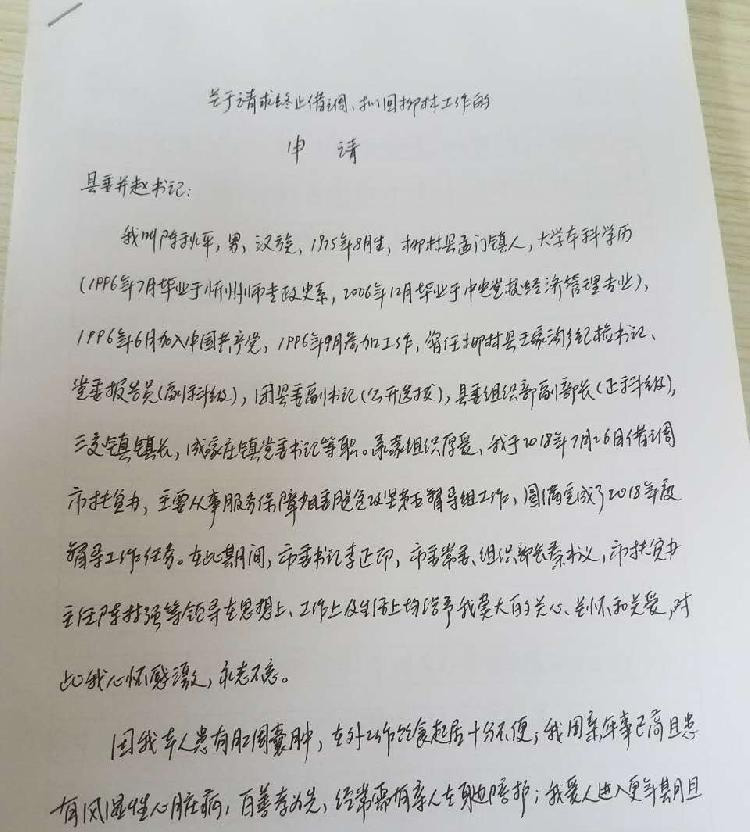 关于请求终止借调、拟回柳林工作的
申 请
县委并赵书记:
我叫陈秋平,男,汉族,1975年8月生,柳林县孟门镇人,大学本科学历
(1996年7月毕业于忻州师专政史系,2006年12月毕业于中央党校经济管理专业),
1996年6月加入中国共产党,1996年9月参加工作,曾任柳林县王家沟乡纪检书记、
党委报告员(副科级),团县委副书记(公开选拔),县委组织部副部长(正科级),
三交镇镇长,成家庄镇党委书记等职。承蒙组织厚爱,我于2018年7月26日借调
市扶贫办,主要从事服务保障省委脱贫攻坚第五督导组工作,圆满完成了2018年度
督导工作任务。在此期间,市委书记李正印,市委常委、组织部长秦书义,市扶贫办
主任陈林强等领导在思想上、工作上及生活上均给予我莫大的关心、关怀和关爱,对
此我心怀感激,永志不忘。
因我本人患有肛周囊肿,在外工作饮食起居十分不便;我母亲年事已高且患
有风湿性心脏病,百善孝为先,经常需有亲人在身边陪护;我爱人进入更年期且